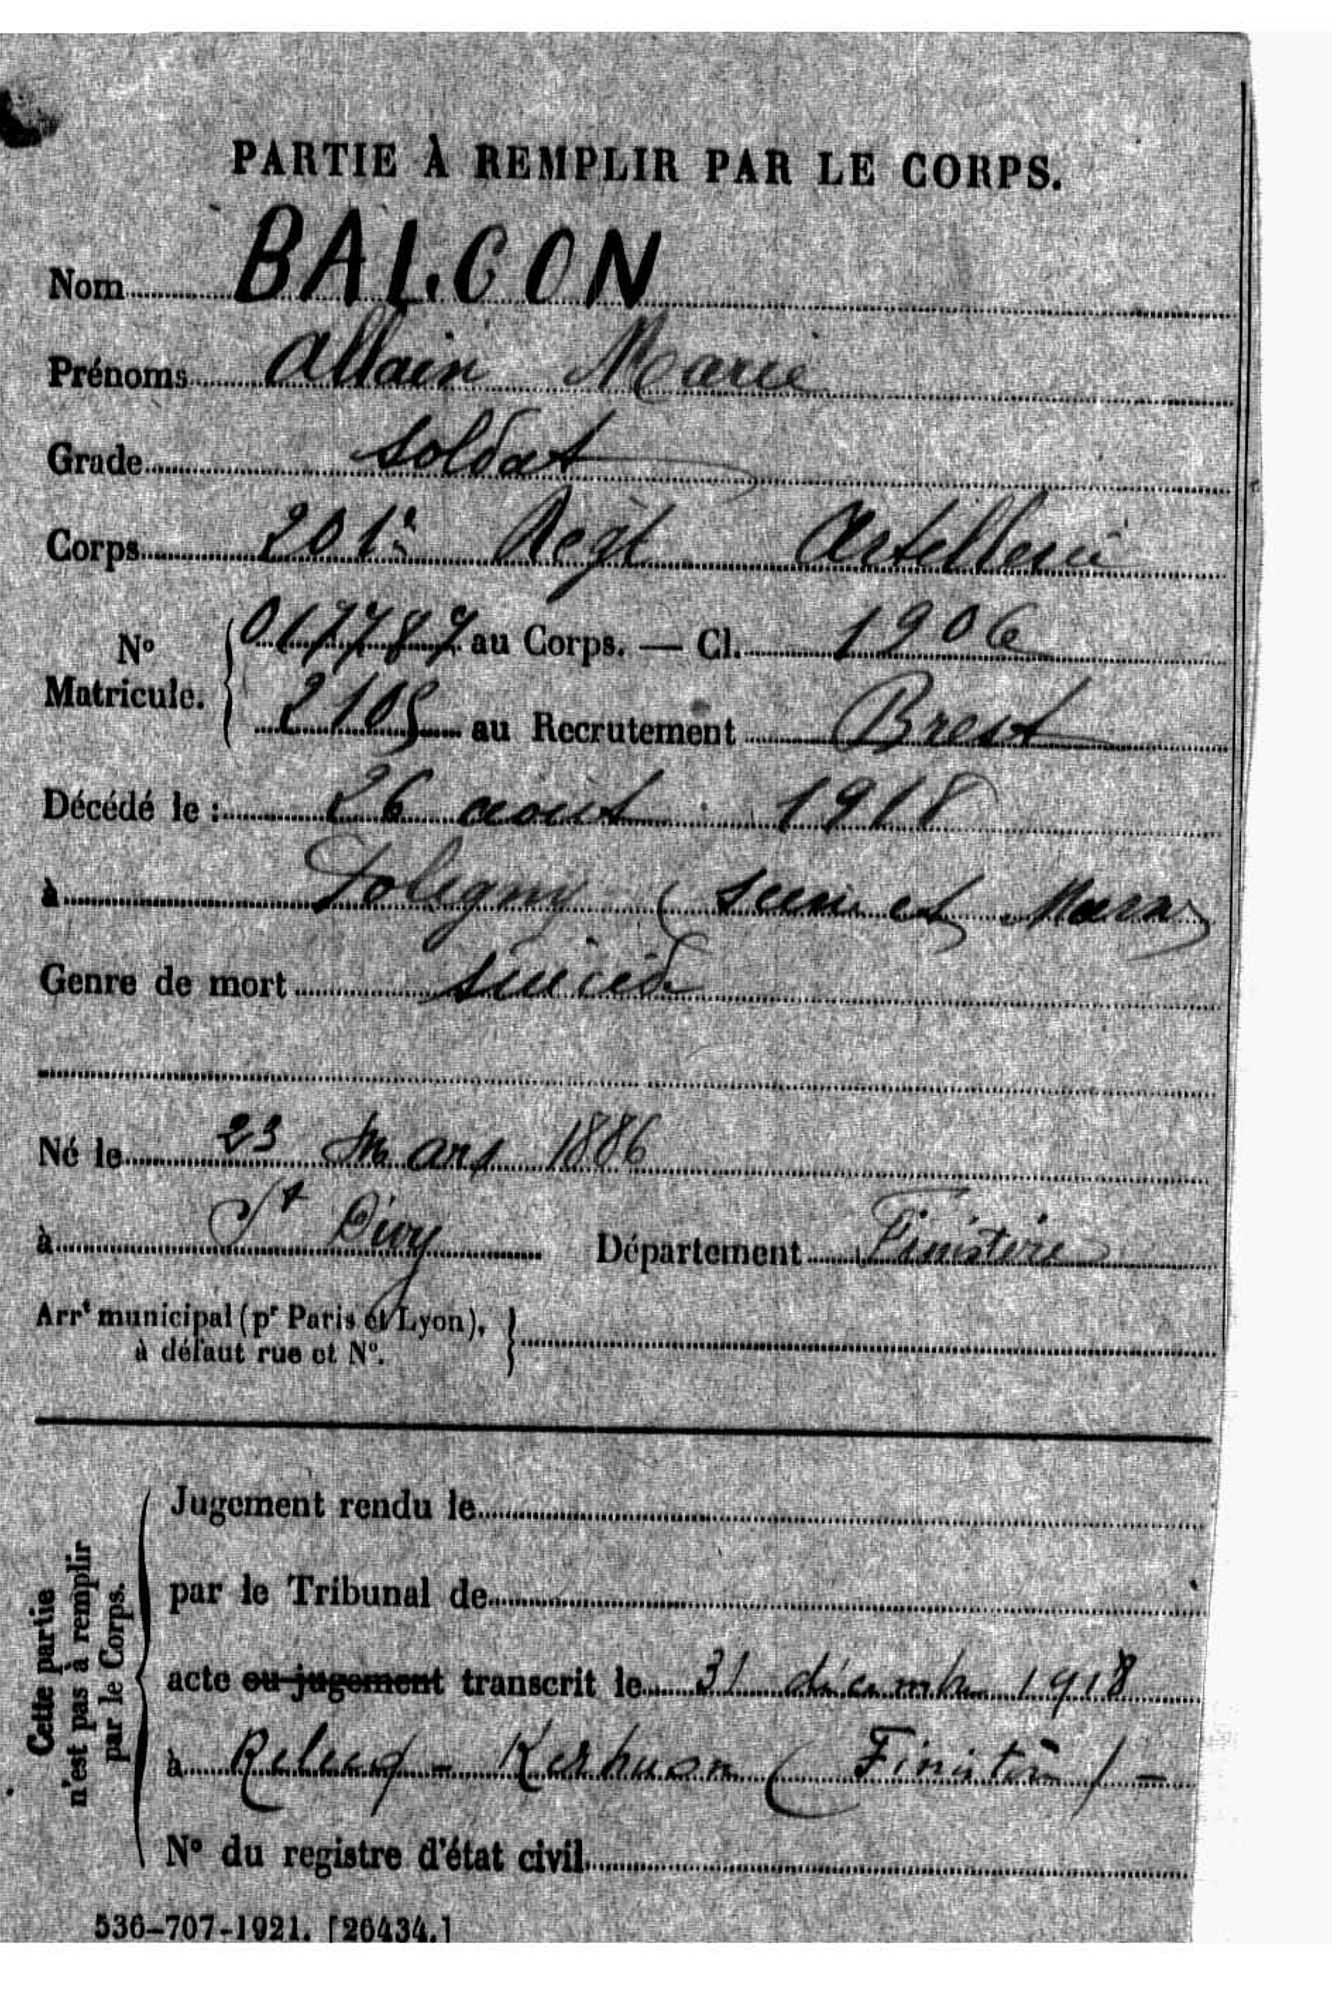 PARTIE À REMPLIR PAR LE CORPS.
Nom BALCON
Prénoms Allain Marie
Grade soldat
Corps 201e Regt Artillerie
No Matricule. { 017787 au Corps. — Cl. 1906
2105 au Recrutement Brest
Décédé le : 26 août 1918
à (Seine et Marne)
Genre de mort suicide
Né le 23 Mars 1886
à St Divy Département Finistère
Arrt municipal (pr Paris et Lyon),
à défaut rue et No. }
Cette partie
n'est pas à remplir
par le Corps.
Jugement rendu le
par le Tribunal de
acte ou jugement transcrit le 31 décembre 1918
à Relecq - Kerhuon (Finistère) -
No du registre d'état civil
536-707-1921. [26434.]